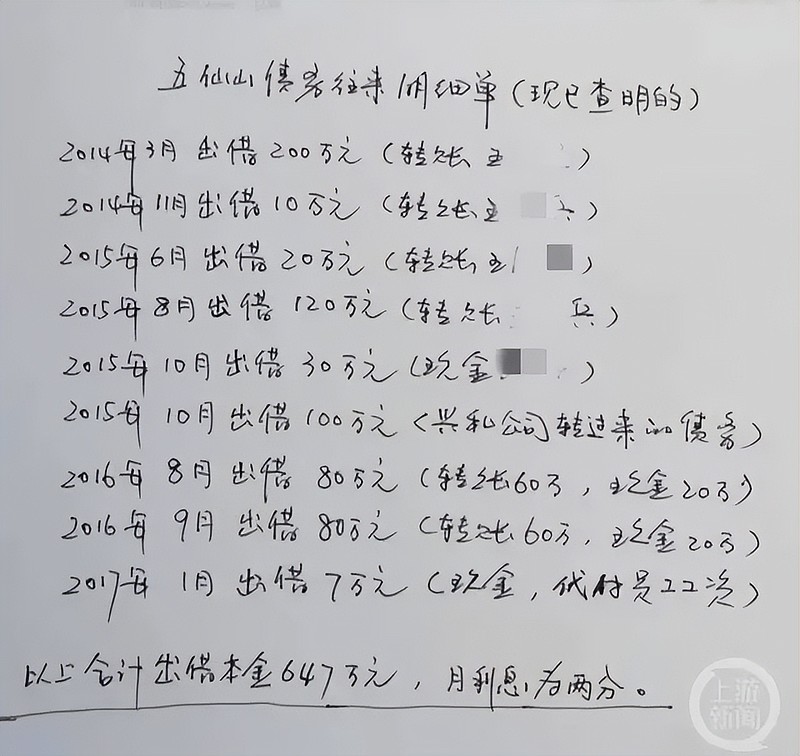 五仙山债务往来明细单(现已查明的)
2014年3月出借200万元(转账王)
2014年11月出借10万元(转账王 兵)
2015年6月出借20万元(转账王)
2015年8月出借120万元(转账 兵)
2015年10月出借30万元(现金)
2015年10月出借100万元(兴和公司转过来的债务)
2016年8月出借80万元(转账60万,现金20万)
2016年9月出借80万元(转账60万,现金20万)
2017年1月出借7万元(现金,代付员工工资)
以上合计出借本金647万元,月利息为两分。
上游新闻